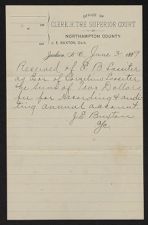 OFFICE OF
CLERK OF THE SUPERIOR COURT
NORTHAMPTON COUNTY.
J. E. BUXTON, Clerk
Jackson N. C. June 3 188
Received of E B Lassiter
as Exr of Cornelius Lassiter
the sum of Two Dollars
for recording & audit
ing annual account.
J. E. Buxton
C S C